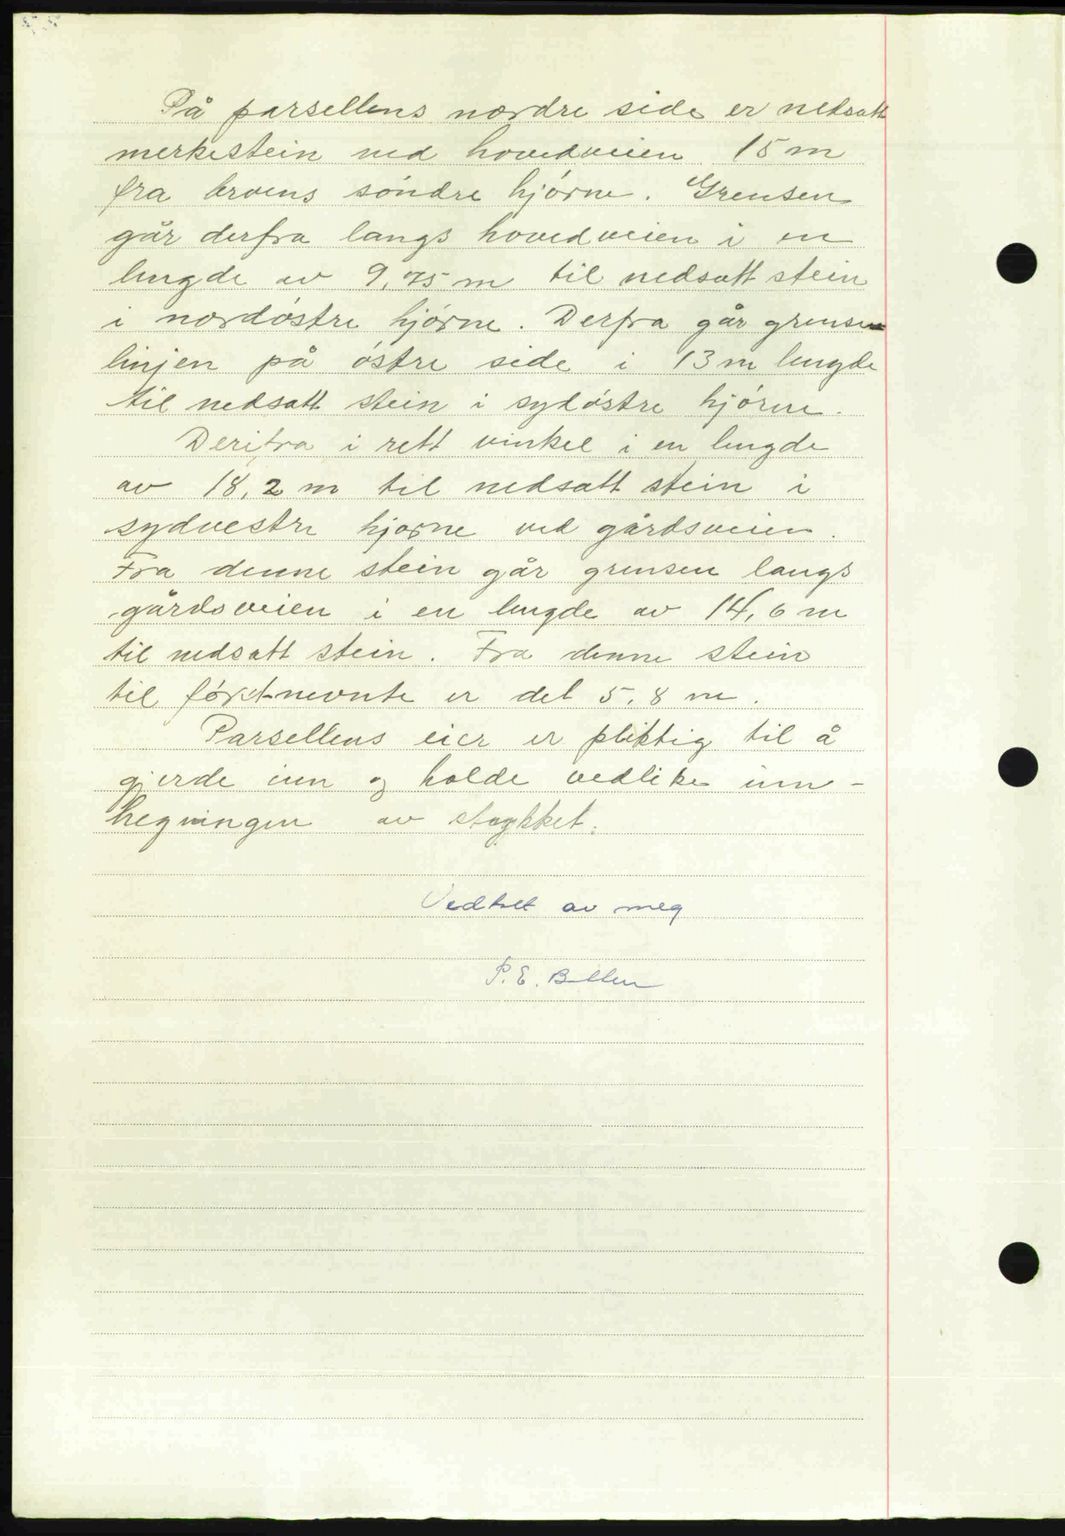 På parsellens nordre side er nedsatt
merkestein ved hovedveien 15 m
fra broens söndre hjörne. Grensen
går derfra langs hovedveien i en
lengde av 9,75 m til nedsatt stein
i nordöstre hjörne. Derfra går grense
linjen på östre side i 13 m lengde
til nedsatt stein i sydöstre hjörne.
Derifra i rett vinkel i en lengde
av 18,2 m til nedsatt stein i
sydvestre hjorne ved gårdsveien.
Fra denne stein går grensen langs
gårdsveien i en lengde av 14,6 m
til nedsatt stein. Fra denne stein
til förstnevnte er det 5,8 m.
Parsellens eier er pliktig til å
gjerde inn og holde vedlike inn-
hegningen av stykket.
Vedtatt av meg
P. E.